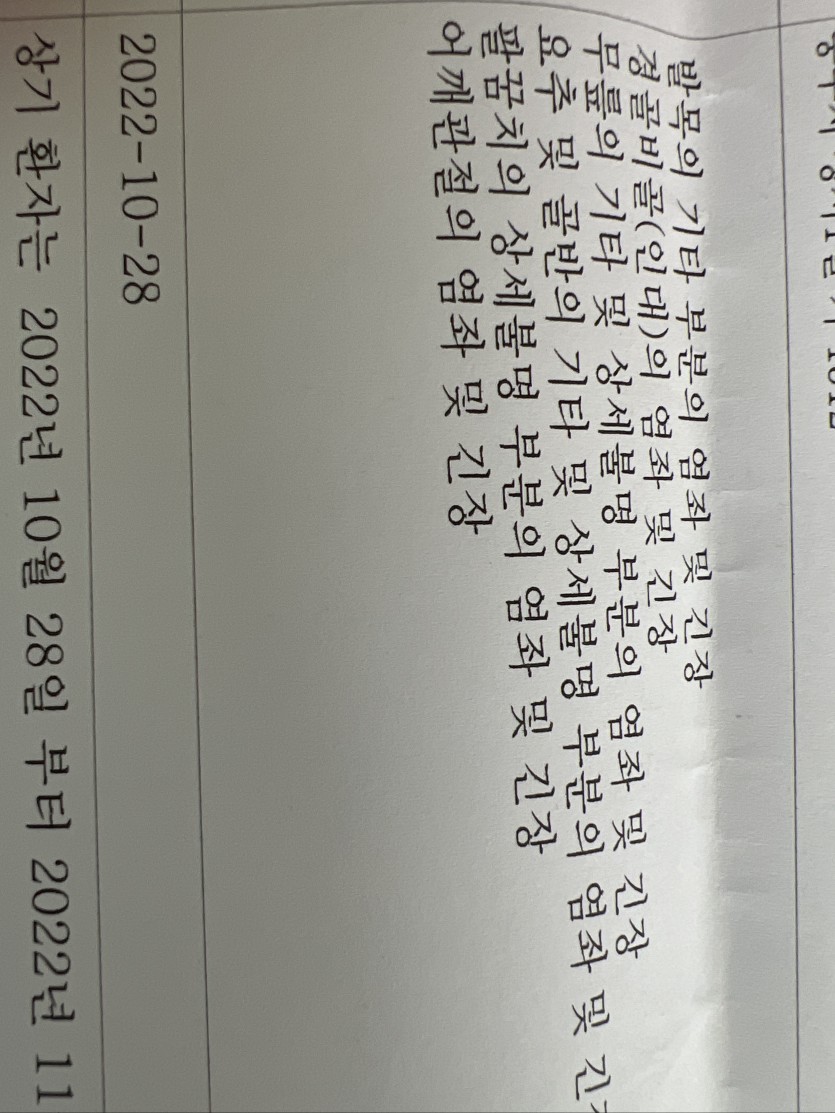 발목의 기타 부분의 염좌 및 긴장
경골비골(인대)의 염좌 및 긴장
무릎의 기타 및 상세불명 부분의 염좌 및 긴장
요추 및 골반의 기타 및 상세불명 부분의 염좌 및
팔꿈치의 상세불명 부분의 염좌 및 긴장
어깨관절의 염좌 및 긴장
2022-10-28
상기 환자는 2022년 10월 28일 부터 2022년 11